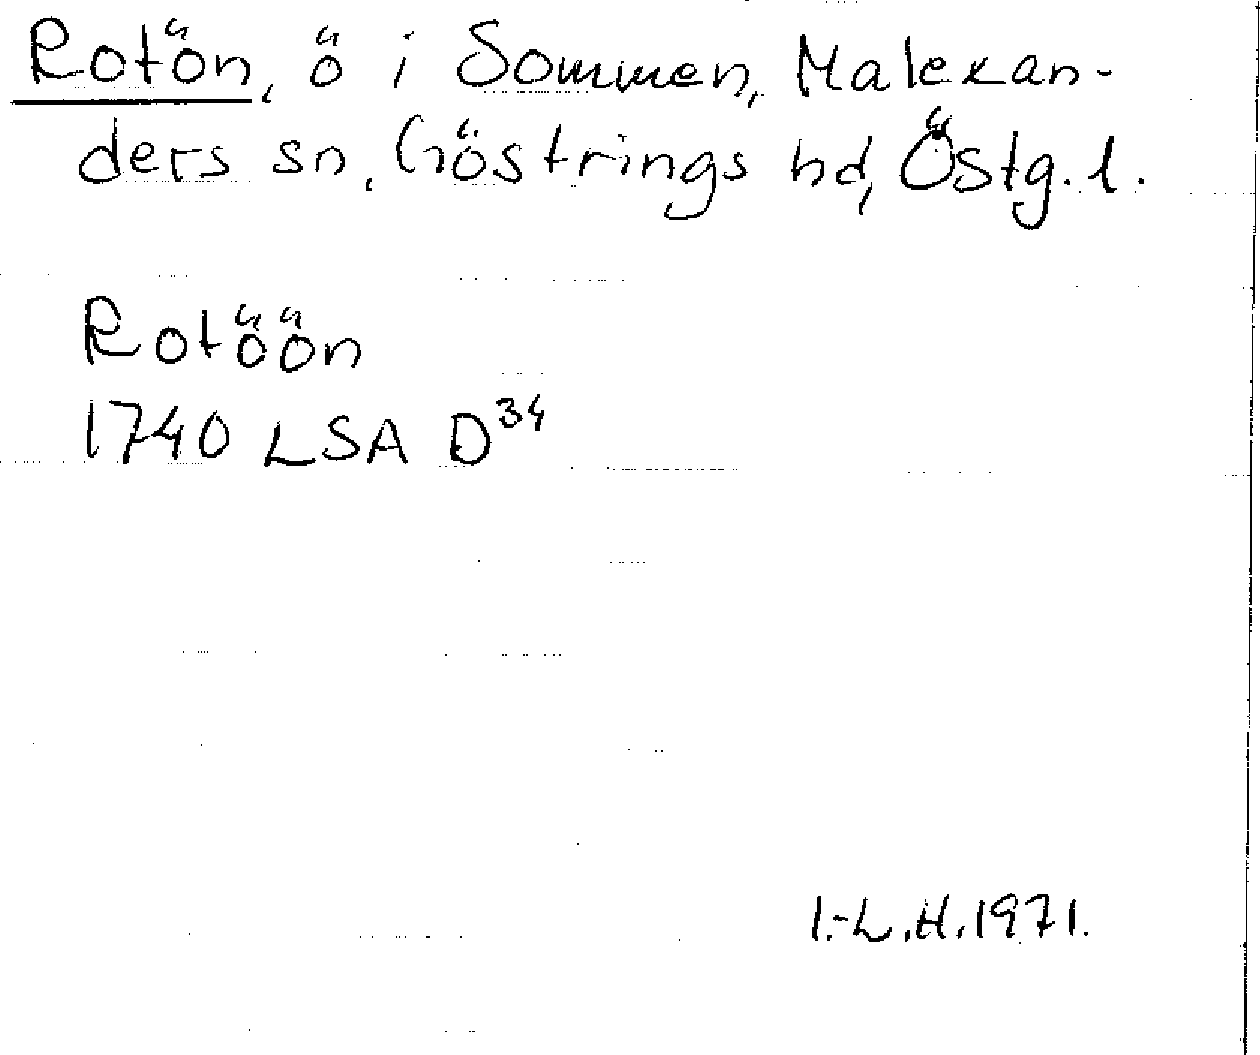 Rotön, ö i Sommen, Malexan-
ders sn, Göstrings hd, Östg. l.
Rotöön
1740 LSA D³⁴
I.-L.H. 1971.